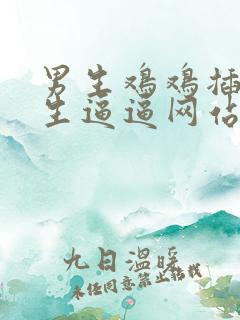 男生鸡鸡插
生逼逼网站
九日温暖
未经同意禁止转载